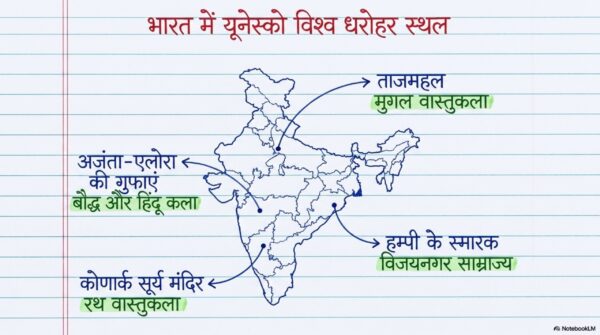 भारत में यूनेस्को विश्व धरोहर स्थल
ताजमहल
मुगल वास्तुकला
अजंता-एलोरा
की गुफाएं
बौद्ध और हिंदू कला
हम्पी के स्मारक
विजयनगर साम्राज्य
कोणार्क सूर्य मंदिर
रथ वास्तुकला
NotebookLM